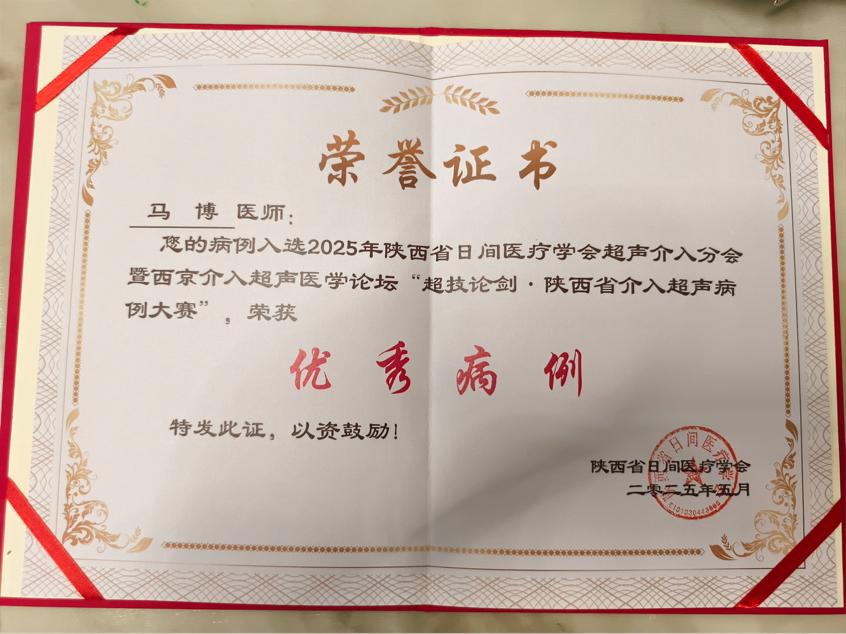 荣誉证书
马 博 医师：
您的病例入选2025年陕西省日间医疗学会超声介入分会
暨西京介入超声医学论坛“超技论剑·陕西省介入超声病
例大赛”，荣获
优秀病例
特发此证，以资鼓励！
陕西省日间医疗学会
二零二五年五月